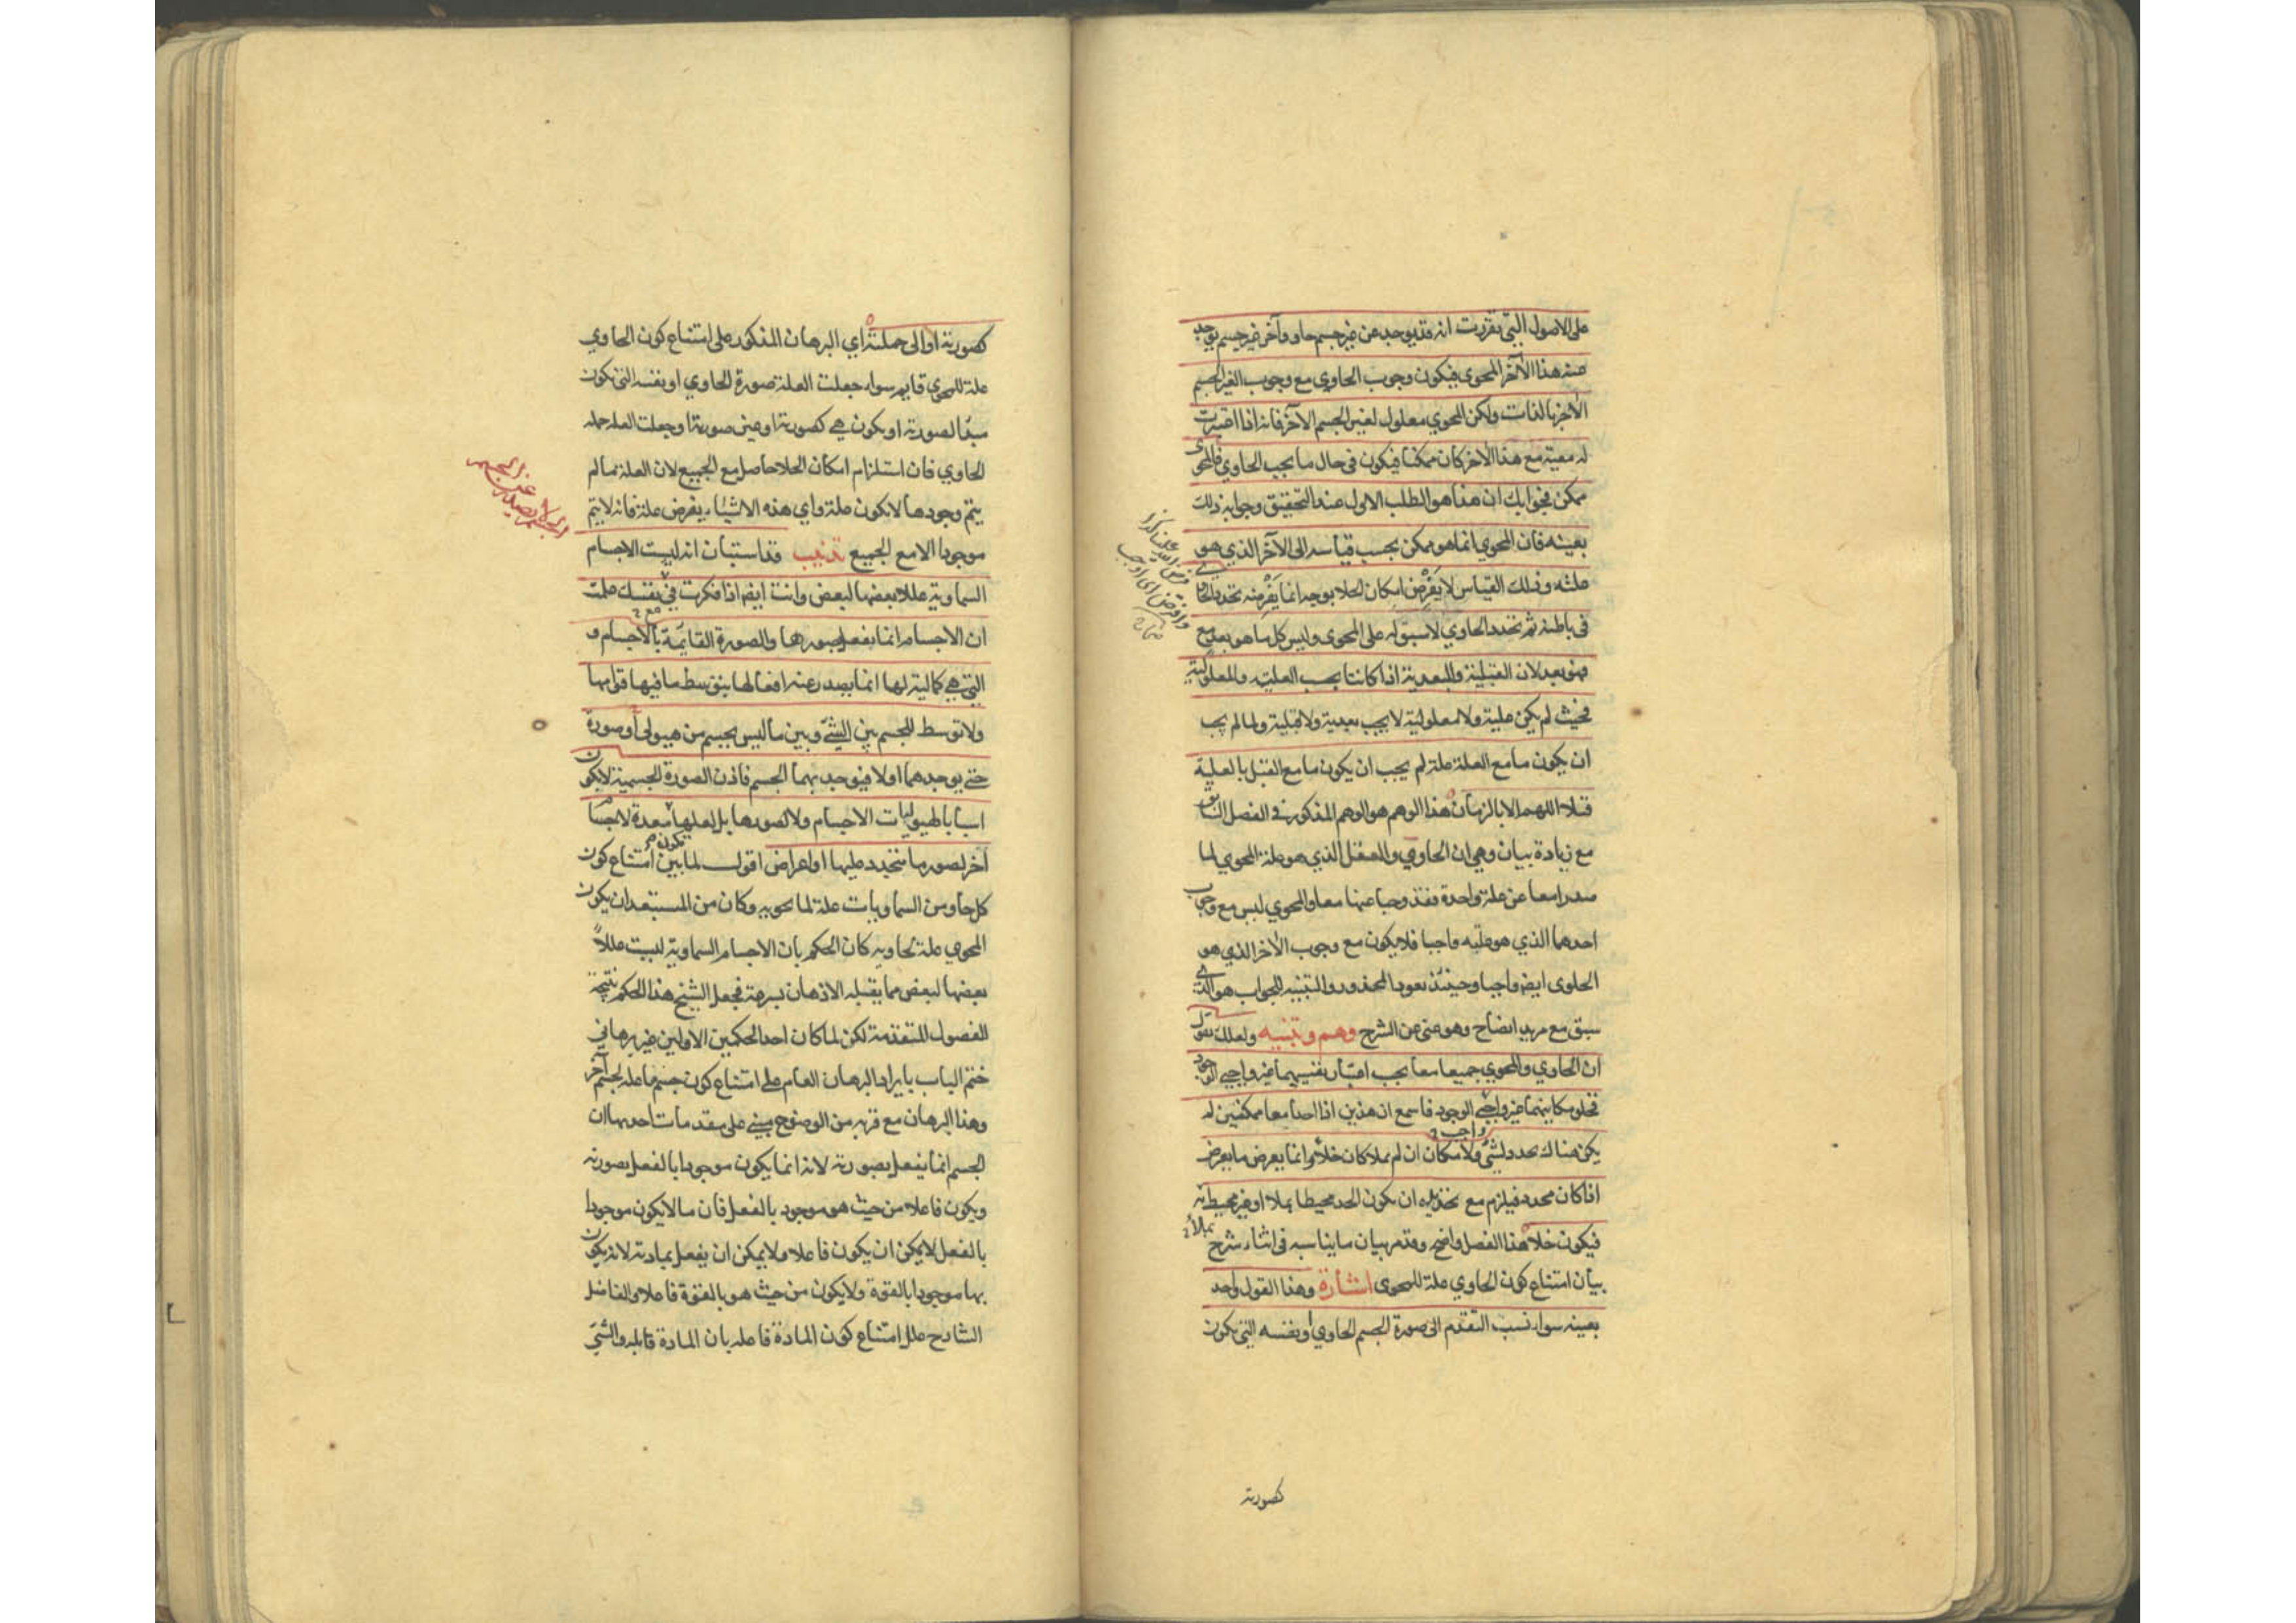 على الاصول التي تقررت انه قد يوجد عن غير جسم حاو وآخر غير جسم يوجد
عنه هذا الآخر المحوى فيكون وجوب الحاوي مع وجوب الغير الجسم
الاخر بالذات ولكن المحوي معلول لغير الجسم الآخر فانه اذا اعتبرت
له معية مع هذا الاخر كان ممكنا فيكون في حال ما يجب الحاوي فالمحوى
ممكن فجوابك ان هذا هو الطلب الاول عند التحقيق وجوابه ذلك
بعينه فان المحوي انما هو ممكن بحسب قياسه الى الآخر الذي هو
علته وذلك القياس لا يفرض امكان الخلا بوجه انما يفرضه تحدد الحاوي
في باطنه ثم تحدد الحاوي لا سبق له على المحوى وليس كل ما هو بعد مع
فهو بعد لان القبلية والبعدية اذا كانتا بحسب العلية والمعلولية
فحيث لم يكن علية ولا معلولية لا يجب بعدية ولا قبلية ولما لم يجب
ان يكون ما مع العلة علة لم يجب ان يكون ما مع القبل بالعلية
قبلا اللهم الا بالزمان هذا الوهم هو الوهم المذكور في الفصل السابق
مع زيادة بيان وهي ان الحاوي والعقل الذي هو علة المحوي لما
صدرا معا عن علة واحدة فقد وجبا عنها معا والمحوي ليس مع وجوب
احدهما الذي هو علته واجبا فلا يكون مع وجوب الاخر الذي هو
الحاوى ايضا واجبا وحينئذ يعود المحذور والتنبيه للجواب هو الذي
سبق مع مزيد ايضاح وهو غني عن الشرح وهم وتنبيه ولعلك تقول
ان الحاوي والمحوي جميعا معا بحسب اعتبار نفسيهما غير واجبي الوجود
فخلو مكانيهما غير واجب الوجود فاسمع ان هذين اذا اخذا معا ممكنين لم
يكن هناك تحدد لشئ ولا مكان ان لم يملا كان خلأ وانما يعرض ما يعرض
اذا كان محدد فيلزم مع تحديده ان يكون الحد محيطا بملا او غير محيط به
بملأ
فيكون خلأ هذا الفصل واضح وقد مر بيان ما يناسبه في اثناء شرح
بيان امتناع كون الحاوي علة للمحوى اشارة وهذا القول واحد
بعينه سواء نسب التقدم الى صورة الجسم الحاوي او نفسه التي يكون
كصورته
كصورته او الى جملته اي البرهان المذكور على امتناع كون الحاوي
علة للمحوي قايم سواء جعلت العلة صورة الحاوي او نفسه التي تكون
مبدأ لصورته او يكون هي كصورته او عين صورته او جعلت العلة جملة
الحاوي فان استلزام امكان الخلا حاصل مع الجميع لان العلة ما لم
يتم وجودها لا تكون علة واي هذه الاشياء يفرض علة فانه لا يتم
موجودا الا مع الجميع تذنيب قد استبان انه ليست الاجسام
السماوية عللا بعضها لبعض وانت ايضا اذا فكرت في نفسك علمت
ان الاجسام انما يفعل بصورها والصورة القائمة بالاجسام و
التي هي كمالية لها انما يصدر عنه افعالها بتوسط ما فيها قوامها
ولا توسط للجسم بين الشئ وبين ما ليس بجسم من هيولى أو صورة
حتى يوجدهما اولا فيوجد بهما الجسم فاذن الصورة الجسمية لا يكون
اسبابا لهيوليات الاجسام ولا لصورها بل لعلها معدة لاجسام
اخر لصور ما يتجدد عليها او اعراض اقول لما بين امتناع كون
كل حاو من السماويات علة لما يحويه وكان من المستبعد ان يكون
المحوي علة لحاويه كان الحكم بان الاجسام السماوية ليست عللاً
بعضها لبعض مما يقبله الاذهان بسرعة فجعل الشيخ هذا الحكم نتيجة
للفصول المتقدمة لكن لما كان احد الحكمين الاولين غير برهاني
ختم الباب بايراد البرهان العام على امتناع كون جسم ما علة لجسم آخر
وهذا البرهان مع قربه من الوضوح مبني على مقدمات احديها ان
الجسم انما يفعل بصورته لانه انما يكون موجودا بالفعل بصورته
ويكون فاعلا من حيث هو موجود بالفعل فان ما لا يكون موجودا
بالفعل لا يمكن ان يكون فاعلا ولا يمكن ان يفعل بمادته لانه يكون
بها موجودا بالقوة ولا يكون من حيث هو بالقوة فاعلا والفاضل
الشارح علل امتناع كون المادة فاعلة بان المادة قابلة والشئ